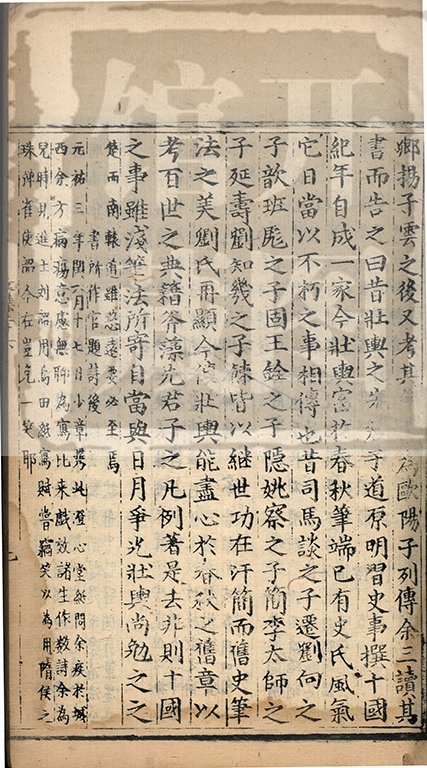 鄉揚子雲之後又考其為歐陽子列傳余三讀其
書而告之曰昔壯輿之子道原明習史事撰十國
紀年自成一家今壯輿富於春秋筆端已有史氏風氣
它日當以不朽之事相傳也昔司馬談之子遷劉向之
子歆班彪之子固王銓之子隱姚察之子簡李太師之
子延壽劉知幾之子餗皆以繼世功在汗簡而舊史筆
法之美劉氏再顯今使壯輿能盡心於春秋之舊章以
考百世之典籍斧藻先君子之凡例著是去非則十國
之事雖淺筆法所寄自當與日月爭光壯輿尚勉之之
楚而南轅道雖悠遠要必至焉
書所作官題詩後
元祐三年閏月十七日少章攜此登心堂紙問余疾於城
西余方病瘍意慮無聊為寫比来戲效諸生作數詩余為
兒時見進士劉韶用烏田寓賦嘗竊笑以為用隋侯之
珠彈雀使韶今在豈免一笑耶